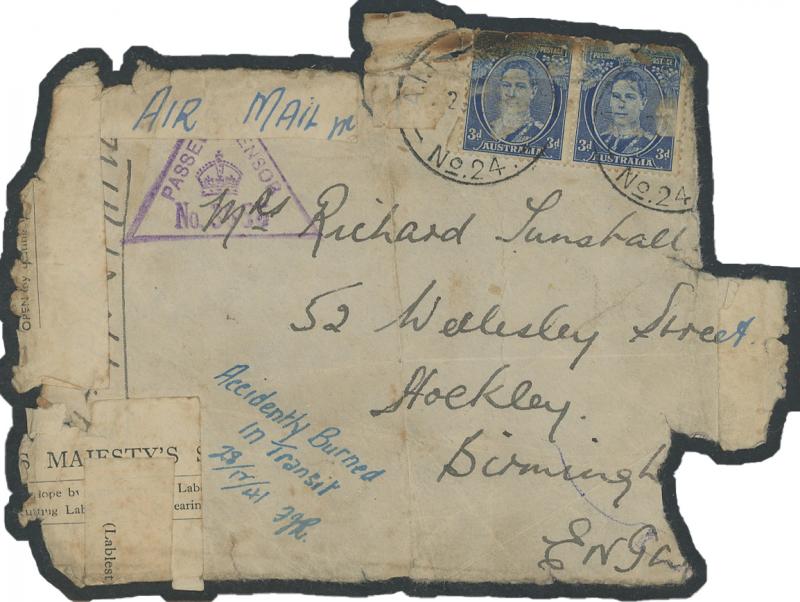 AIR MAIL
POSTAGE
3d 3d
AUSTRALIA
POSTAGE
3d 3d
AUSTRALIA
No. 24
No. 24
No.
Mrs Richard Tunstall
52 Wellesley Street
Hockley.
Birmingh
Accidently Burned
In Transit
OPEN by
MAJESTY'S S
lope by Lab
Lab earin
(Lablest